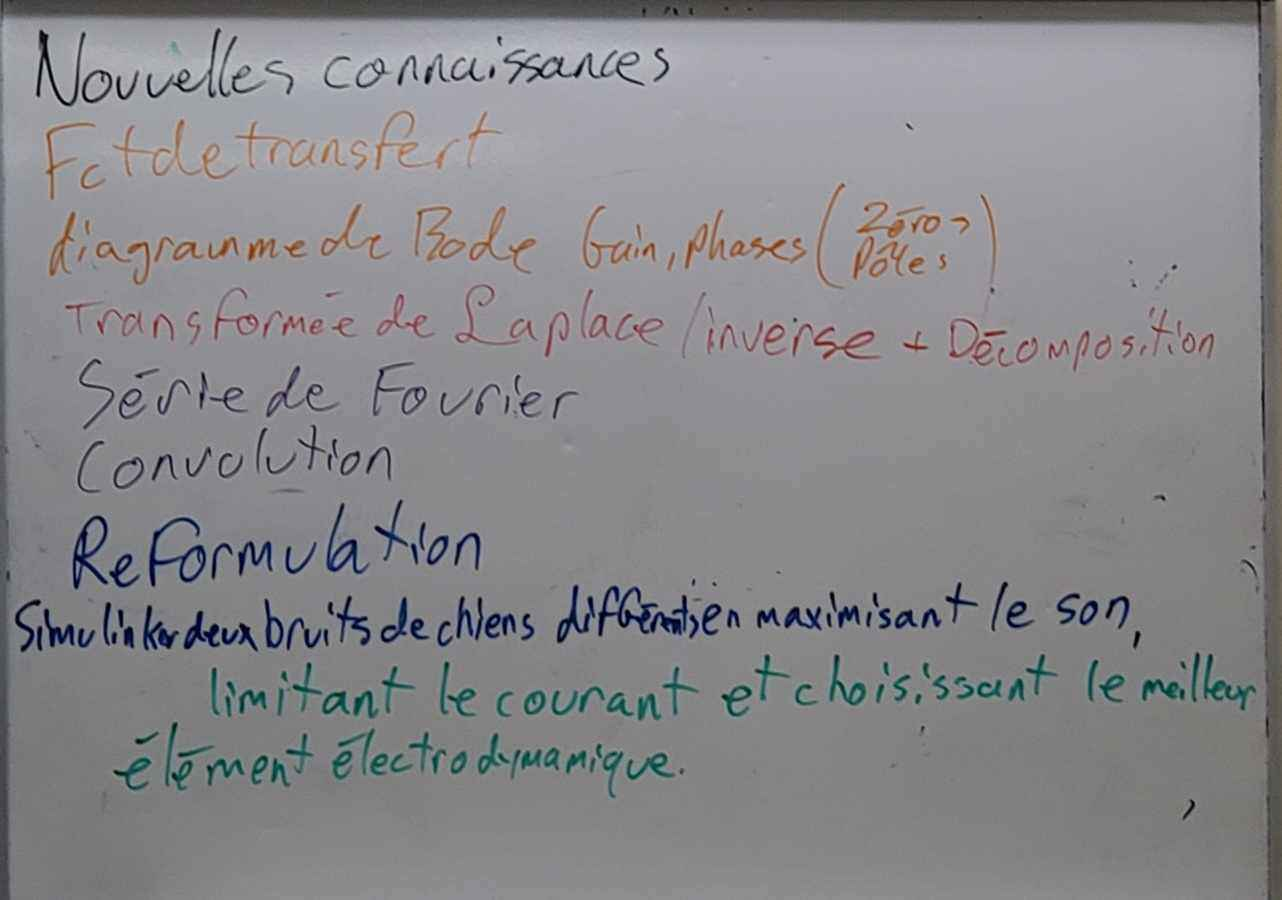 Nouvelles connaissances
Fct de transfert
diagramme de Bode Gain, phases (Zéros
Pôles)
Transformée de Laplace / inverse + Décomposition
Série de Fourier
Convolution
Reformulation
Simulinker deux bruits de chiens différents en maximisant le son,
limitant le courant et choisissant le meilleur
élément électrodynamique.